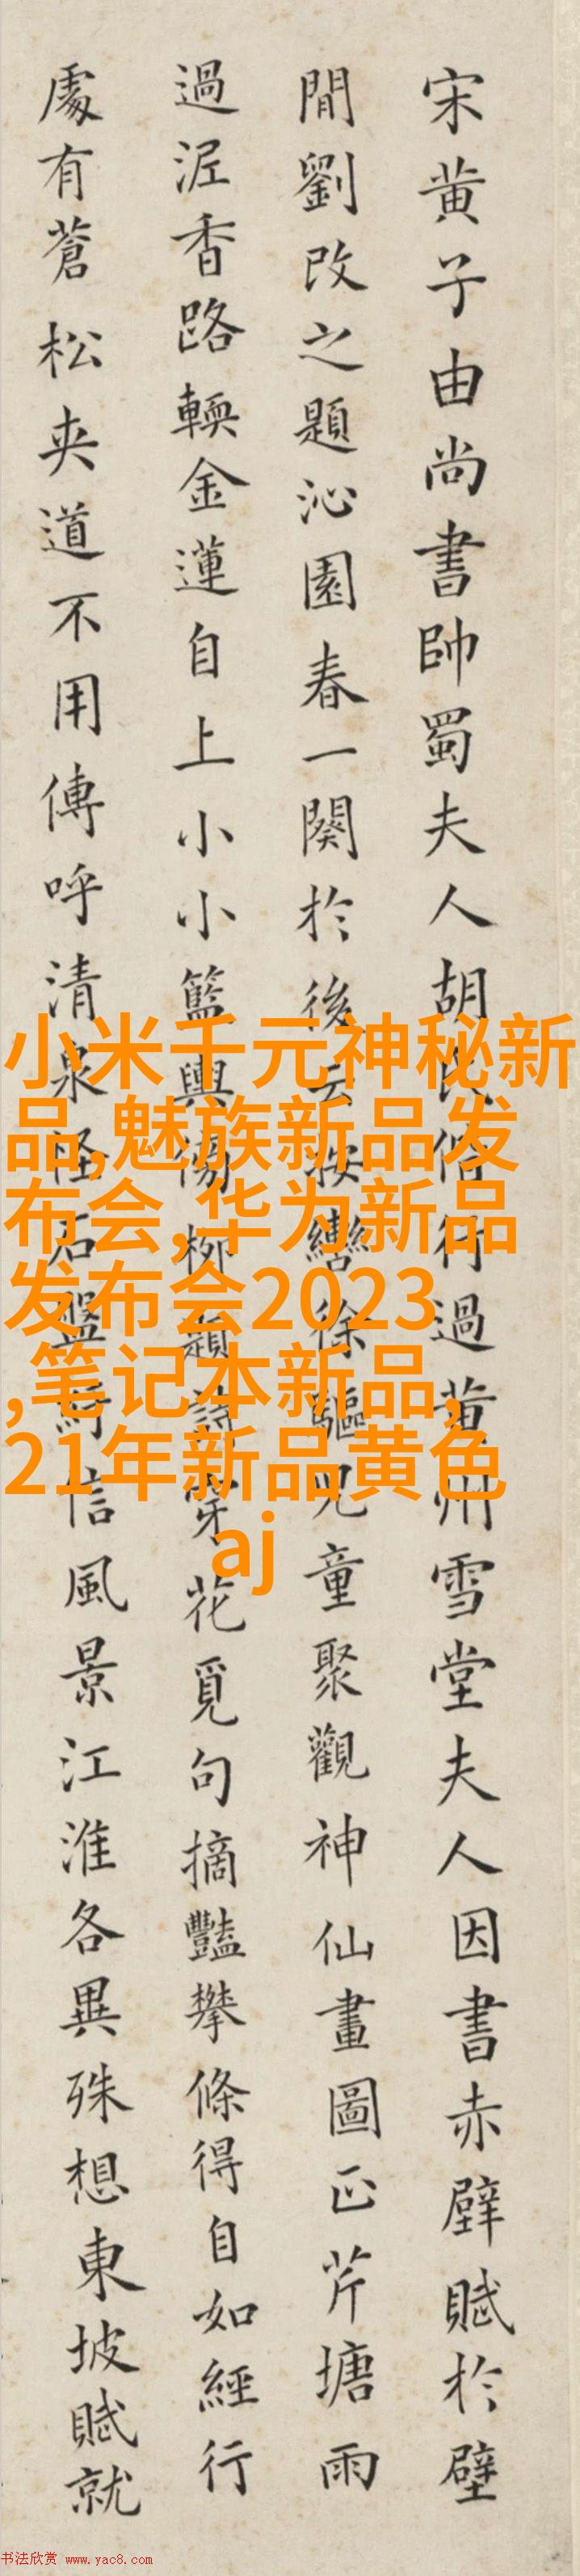 宋黄子由尚書帥蜀夫人胡氏偕行過黄州雪堂夫人因書赤壁賦於壁
間劉改之題沁園春一闋於後云按轡徐驅兒童聚觀神仙畫圖正芹塘雨
過泥香路輭金蓮自上小小籃輿傍柳題詩穿花覓句摘豔攀條得自如經行
處有蒼松夾道不用傳呼清泉怪石盤紆信風景江淮各異殊想東坡賦就
小米千元神秘新
品,魅族新品发
布会,华为新品
发布会2023
,笔记本新品,
21年新品黄色
aj
书法欣赏 www.yac8.com